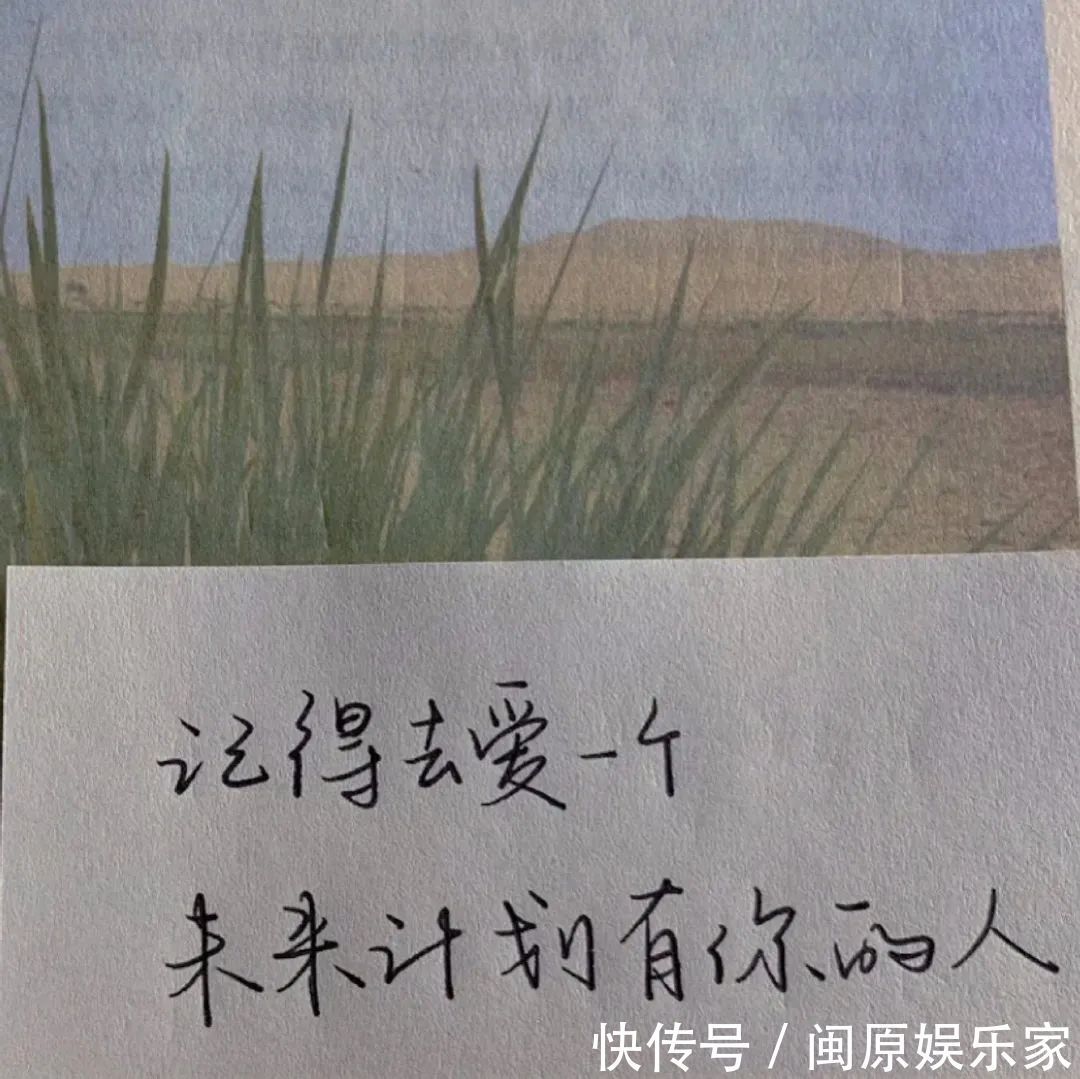 记得去爱一个
未来计划有你的人
快传号 / 闽原娱乐家